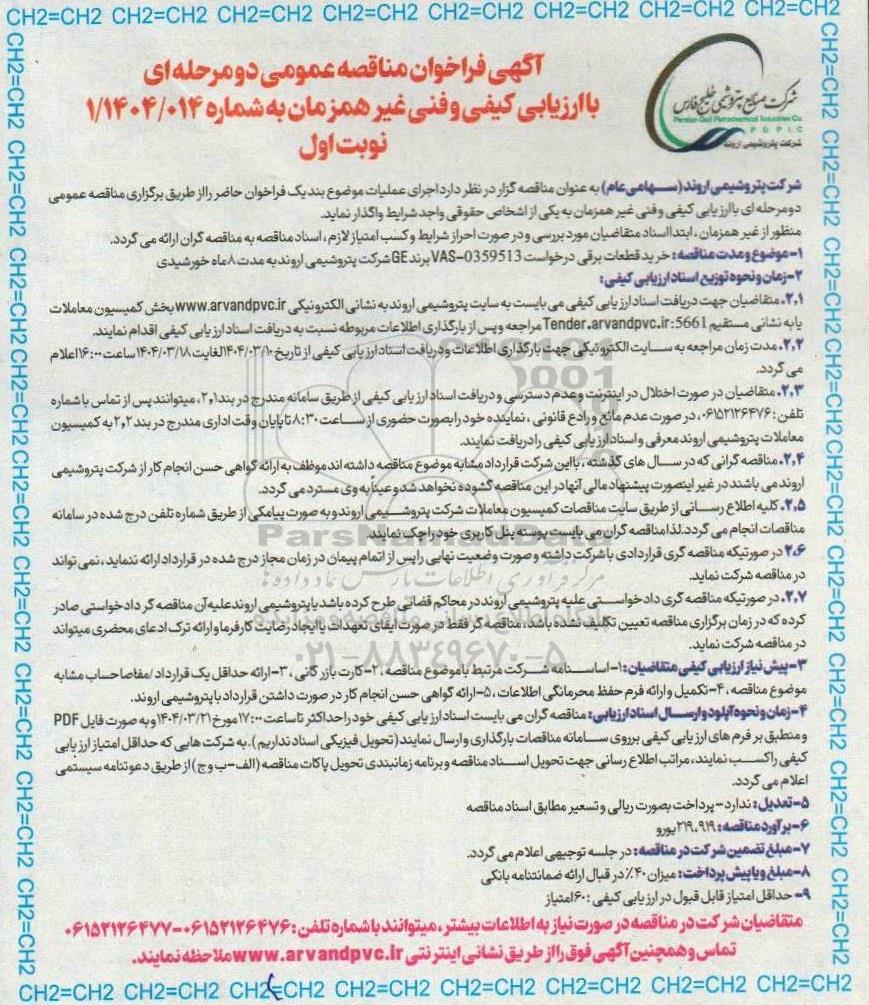 CH2=CH2 CH2=CH2 CH2=CH2 CH2=CH2 CH2=CH2 CH2=CH2 CH2=CH2 CH2=CH2
شرکت صنایع پتروشیمی خلیج فارس
Persian Gulf Petrochemical Industries Co
P G P I C
شرکت پتروشیمی اروند
آگهی فراخوان مناقصه عمومی دو مرحله ای
با ارزیابی کیفی و فنی غیر همزمان به شماره ۱/۱۴۰۴/۰۱۴
نوبت اول
شرکت پتروشیمی اروند (سهامی عام) به عنوان مناقصه گزار در نظر دارد اجرای عملیات موضوع بند یک فراخوان حاضر را از طریق برگزاری مناقصه عمومی
دو مرحله ای با ارزیابی کیفی و فنی غیر همزمان به یکی از اشخاص حقوقی واجد شرایط واگذار نماید.
منظور از غیر همزمان، ابتدا اسناد متقاضیان مورد بررسی و در صورت احراز شرایط و کسب امتیاز لازم، اسناد مناقصه به مناقصه گران ارائه می گردد.
۱- موضوع و مدت مناقصه: خرید قطعات برقی درخواست VAS-0359513 برند GE شرکت پتروشیمی اروند به مدت ۸ ماه خورشیدی
۲- زمان و نحوه توزیع اسناد ارزیابی کیفی:
۲،۱. متقاضیان جهت دریافت اسناد ارزیابی کیفی می بایست به سایت پتروشیمی اروند به نشانی الکترونیکی www.arvandpvc.ir بخش کمیسیون معاملات
یا به نشانی مستقیم Tender.arvandpvc.ir:5661 مراجعه و پس از بارگذاری اطلاعات مربوطه نسبت به دریافت اسناد ارزیابی کیفی اقدام نمایند.
۲،۲. مدت زمان مراجعه به سایت الکترونیکی جهت بارگذاری اطلاعات و دریافت اسناد ارزیابی کیفی از تاریخ ۱۴۰۴/۰۳/۱۰ لغایت ۱۴۰۴/۰۳/۱۸ ساعت ۱۶:۰۰ اعلام
می گردد.
۲،۳. متقاضیان در صورت اختلال در اینترنت و عدم دسترسی و دریافت اسناد ارزیابی کیفی از طریق سامانه مندرج در بند ۲،۱، میتوانند پس از تماس با شماره
تلفن: ۰۶۱۵۲۱۲۶۴۷۶، در صورت عدم مانع و رادع قانونی، نماینده خود را بصورت حضوری از ساعت ۸:۳۰ تا پایان وقت اداری مندرج در بند ۲،۲ به کمیسیون
معاملات پتروشیمی اروند معرفی و اسناد ارزیابی کیفی را دریافت نمایند.
۲،۴. مناقصه گرانی که در سال های گذشته، با این شرکت قرارداد مشابه موضوع مناقصه داشته اند موظف به ارائه گواهی حسن انجام کار از شرکت پتروشیمی
اروند می باشند در غیر اینصورت پیشنهاد مالی آنها در این مناقصه گشوده نخواهد شد و عیناً به وی مسترد می گردد.
۲،۵. کلیه اطلاع رسانی از طریق سایت مناقصات کمیسیون معاملات شرکت پتروشیمی اروند و به صورت پیامکی از طریق شماره تلفن درج شده در سامانه
مناقصات انجام می گردد. لذا مناقصه گران می بایست پیوسته پنل کاربری خود را چک نمایند.
۲،۶. در صورتیکه مناقصه گری قراردادی با شرکت داشته و صورت وضعیت نهایی را پس از اتمام پیمان در زمان مجاز درج شده در قرارداد ارائه ننماید، نمی تواند
در مناقصه شرکت نماید.
۲،۷. در صورتیکه مناقصه گری دادخواستی علیه پتروشیمی اروند در محاکم قضائی طرح کرده باشد یا پتروشیمی اروند علیه آن مناقصه گر دادخواستی صادر
کرده که در زمان برگزاری مناقصه تعیین تکلیف نشده باشد، مناقصه گر فقط در صورت ایفای تعهدات یا ایجاد رضایت کارفرما و ارائه ترک ادعای محضری میتواند
در مناقصه شرکت نماید.
۳- پیش نیاز ارزیابی کیفی متقاضیان: ۱- اساسنامه شرکت مرتبط با موضوع مناقصه، ۲- کارت بازرگانی، ۳- ارائه حداقل یک قرارداد/مفاصا حساب مشابه
موضوع مناقصه، ۴- تکمیل و ارائه فرم حفظ محرمانگی اطلاعات، ۵- ارائه گواهی حسن انجام کار در صورت داشتن قرارداد با پتروشیمی اروند.
۴- زمان و نحوه آپلود و ارسال اسناد ارزیابی: مناقصه گران می بایست اسناد ارزیابی کیفی خود را حداکثر تا ساعت ۱۷:۰۰ مورخ ۱۴۰۴/۰۳/۲۱ و به صورت فایل PDF
و منطبق بر فرم های ارزیابی کیفی بر روی سامانه مناقصات بارگذاری و ارسال نمایند (تحویل فیزیکی اسناد نداریم). به شرکت هایی که حداقل امتیاز ارزیابی
کیفی را کسب نمایند، مراتب اطلاع رسانی جهت تحویل اسناد مناقصه و برنامه زمانبندی تحویل پاکات مناقصه (الف-ب و ج) از طریق دعوتنامه سیستمی
اعلام می گردد.
۵- تعدیل: ندارد- پرداخت بصورت ریالی و تسعیر مطابق اسناد مناقصه
۶- برآورد مناقصه: ۲۱۹،۹۱۹ یورو
۷- مبلغ تضمین شرکت در مناقصه: در جلسه توجیهی اعلام می گردد.
۸- مبلغ و یا پیش پرداخت: میزان ۴۰٪ در قبال ارائه ضمانتنامه بانکی
۹- حداقل امتیاز قابل قبول در ارزیابی کیفی: ۶۰ امتیاز
متقاضیان شرکت در مناقصه در صورت نیاز به اطلاعات بیشتر، میتوانند با شماره تلفن: ۰۶۱۵۲۱۲۶۴۷۶-۰۶۱۵۲۱۲۶۴۷۷
تماس و همچنین آگهی فوق را از طریق نشانی اینترنتی www.arvandpvc.ir ملاحظه نمایند.
ParsNamadData
مرکز فرآوری اطلاعات پارس نماد داده ها
۰۲۱-۸۸۳۴۹۶۷۰-۵
CH2=CH2 CH2=CH2 CH2=CH2 CH2=CH2 CH2=CH2 CH2=CH2 CH2=CH2 CH2=CH2